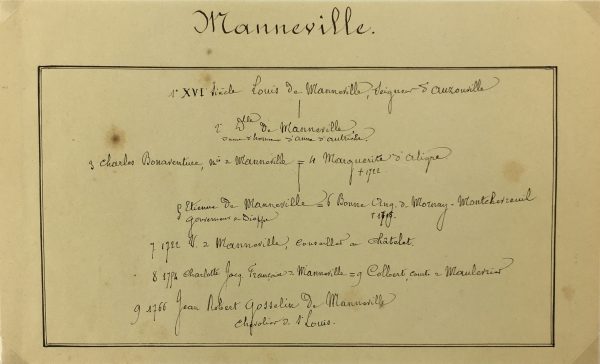 Manneville.
1° XVI Siècle Louis de Manneville, Seigneur d'Auzouville
2° Dlle de Manneville
dame d'honneur d'anne d'autriche.
3 Charles Bonaventure, mis de Manneville = 4 Marguerite d'Aligre
† 1722
5 Etienne de Manneville = 6 Bonne Ang. de Mornay-Montchevreuil
Gouverneur de Dieppe
7 1722 V. de Manneville, Conseiller au Châtelet.
8 1794 Charlotte Jacq. Françoise de Manneville = 9 Colbert, comte de Maulevrier
9 1766 Jean Robert Gosselin de Manneville
Chevalier de St Louis.